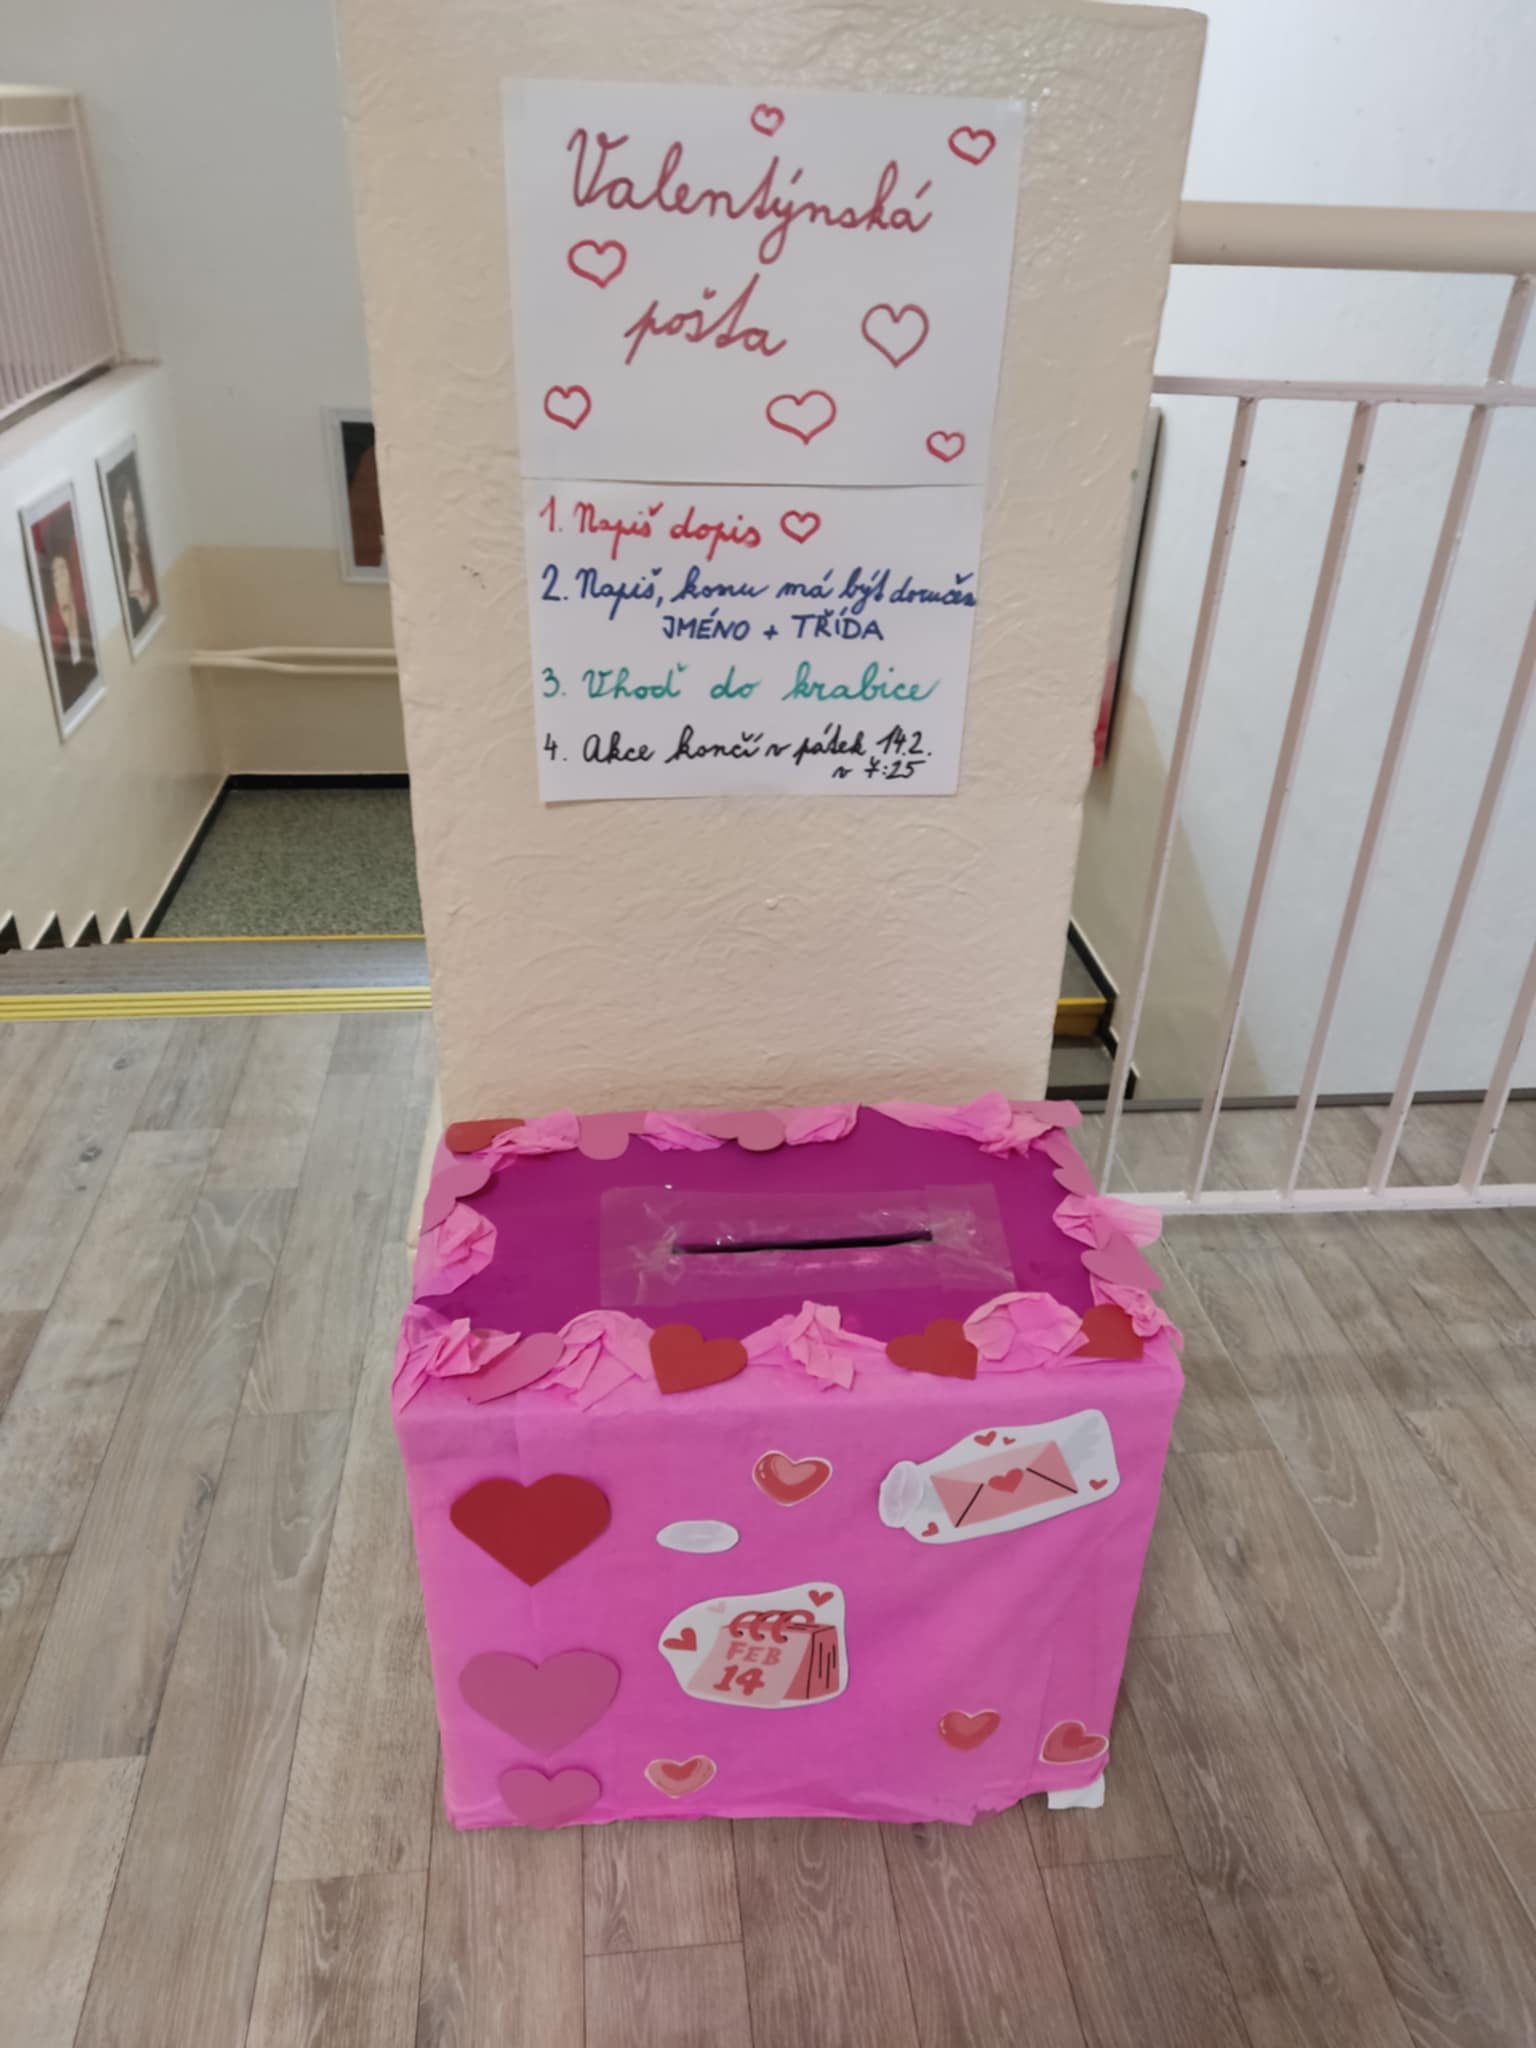 Valentýnská
pošta
1. Napiš dopis
2. Napiš, komu má být doručen
JMÉNO + TŘÍDA
3. Vhoď do krabice
4. Akce končí v pátek 14.2.
v 7:25
FEB
14